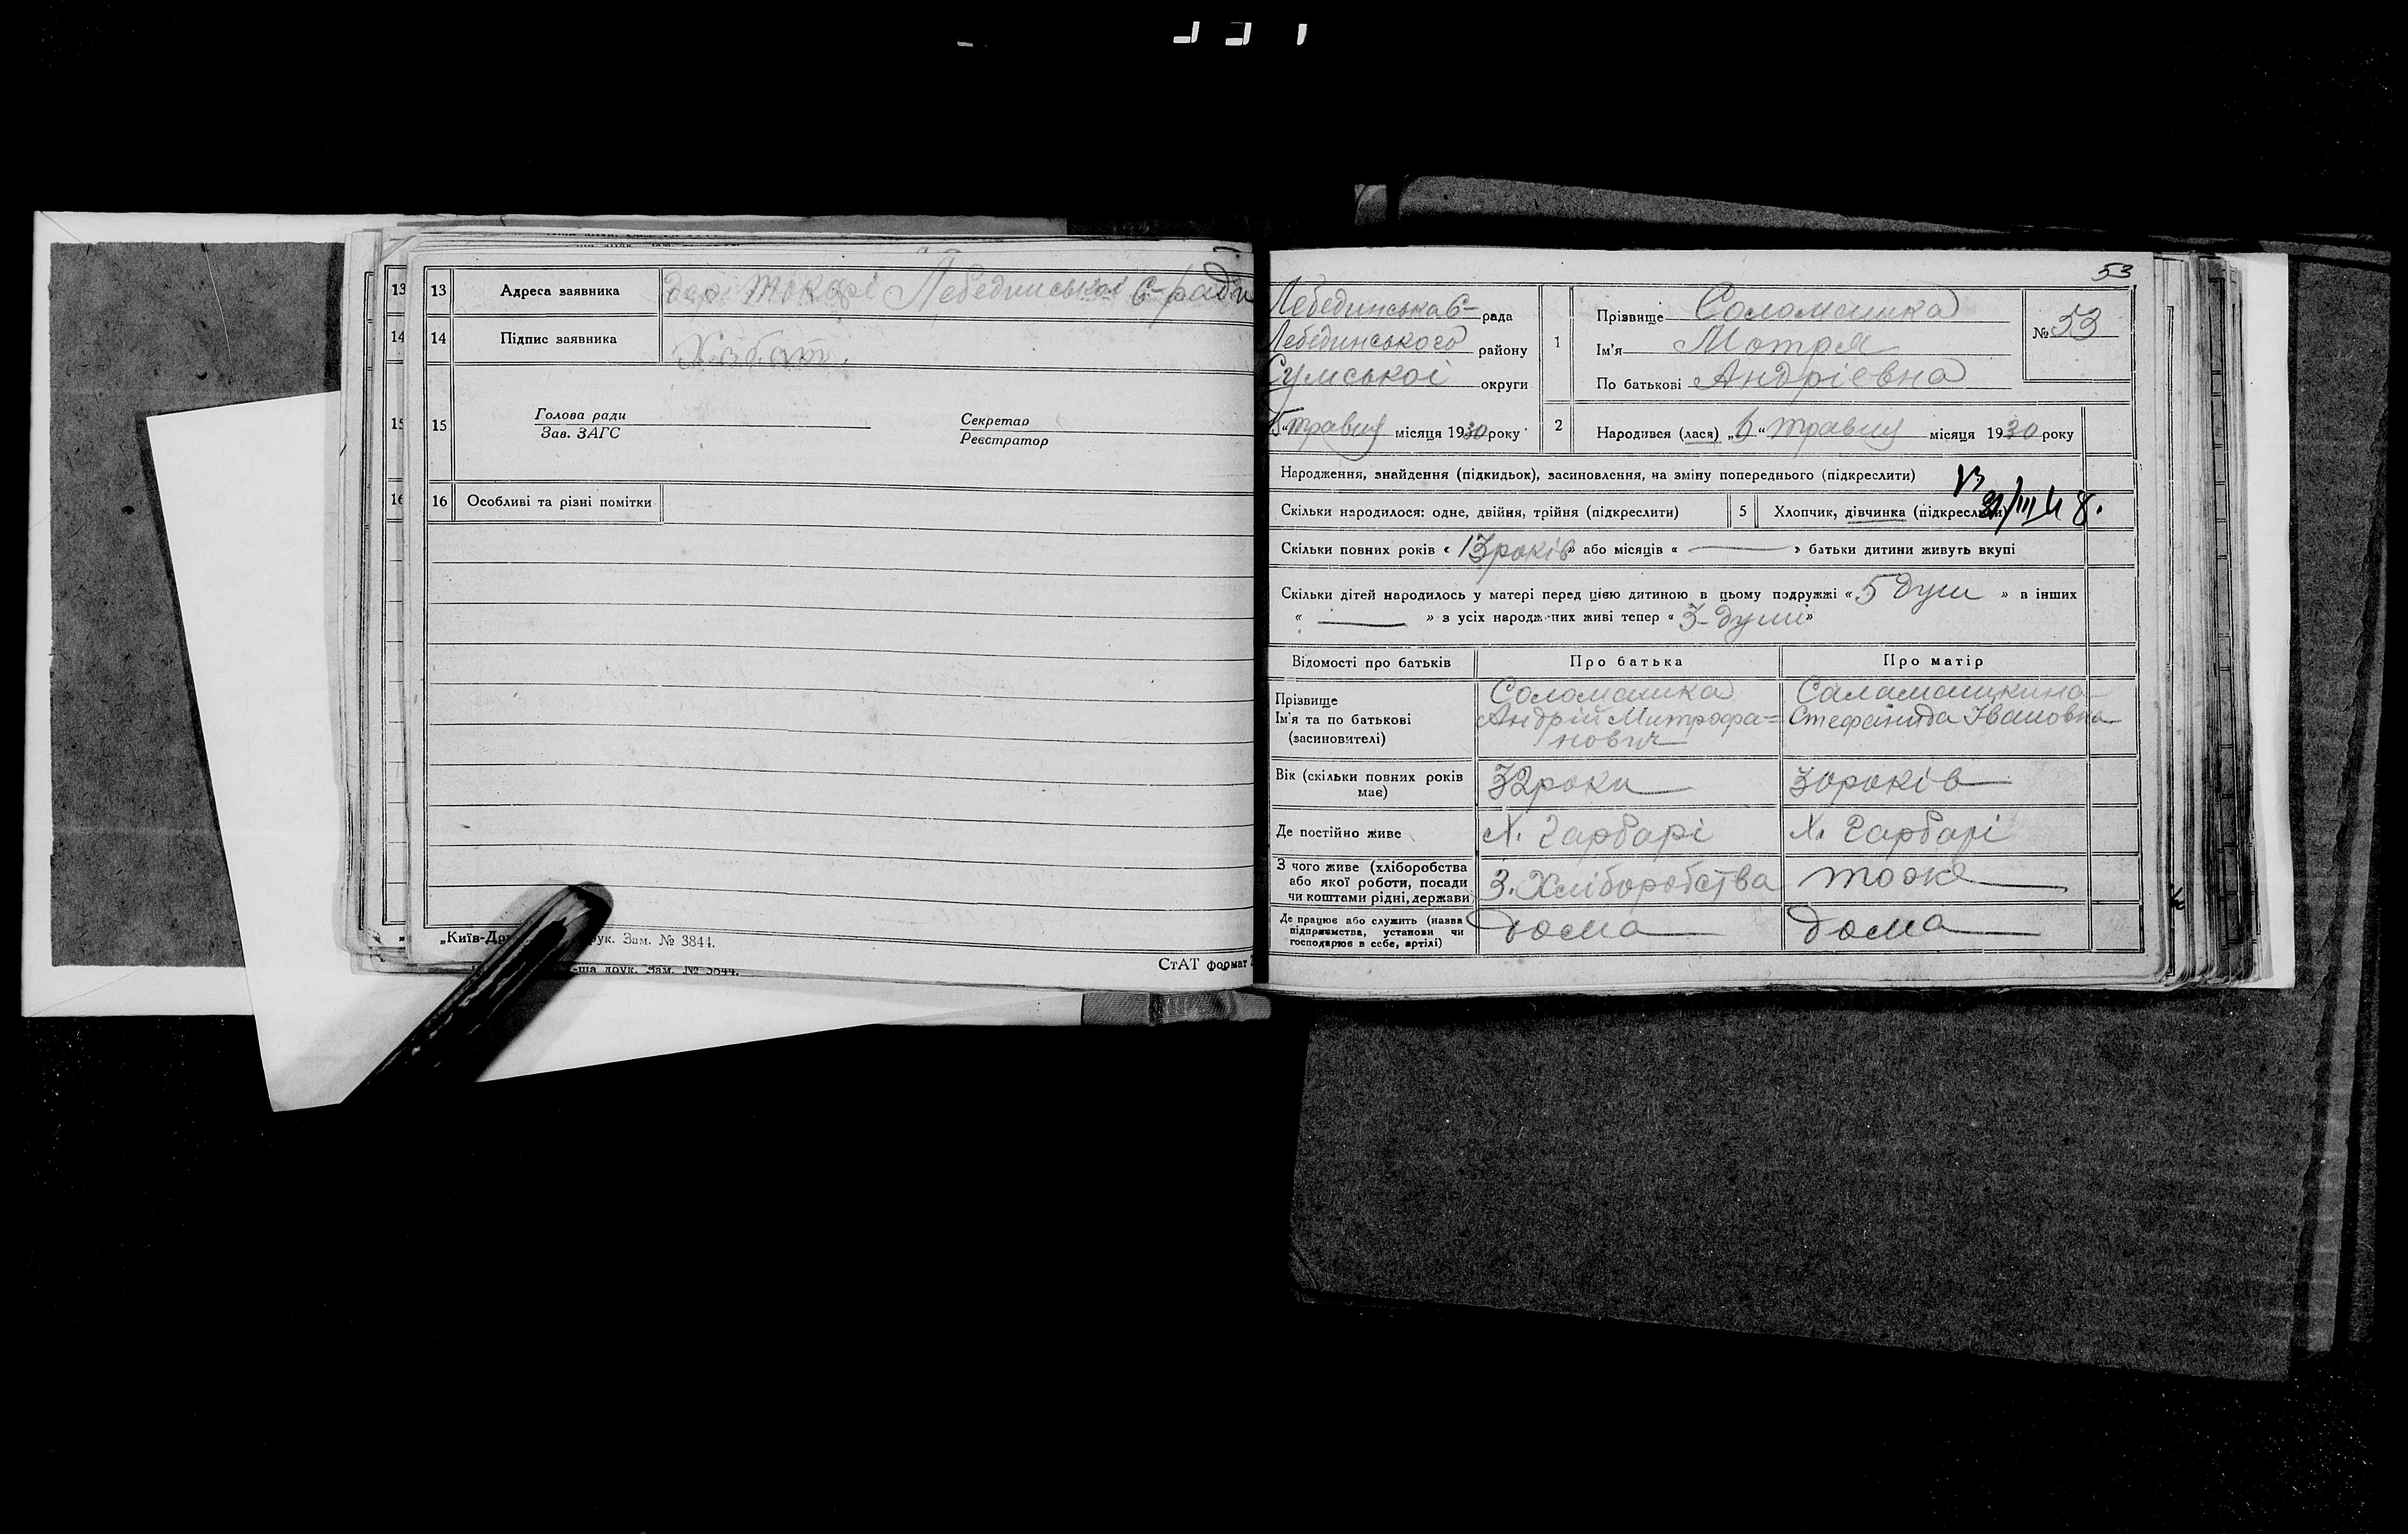 13 Адреса заявника дер. Токарі Лебединської С-ради
14 Підпис заявника
15 Голова ради Секретар
Зав. ЗАГС Реєстратор
16 Особливі та різні помітки
„Київ-Др рук. Зам. № 3844.
СтАТ формат
53
Лебединська С- рада
Лебединського району
Сумської округи
травня місяця 1930 року
1 Прізвище Соломашка
Ім'я Мотря
По батькові Андріевна
№ 53
2 Народився (лася) „6“ травня місяця 1930 року
Народження, знайдення (підкидьок), засиновлення, на зміну попереднього (підкреслити)
Скільки народилося: одне, двійня, трійня (підкреслити) 5 Хлопчик, дівчинка (підкреслити)
Скільки повних років « 13 років » або місяців « — » батьки дитини живуть вкупі
Скільки дітей народилось у матері перед цією дитиною в цьому подружжі « 5 душ » в інших
« — » з усіх народжених живі тепер « 3 душі »
Відомості про батьків Про батька Про матір
Прізвище Соломашка Саламашкина
Ім'я та по батькові Андрій Митрофа= Стефанида Івановна
(засиновителі) нович
Вік (скільки повних років має) 32 роки 30 років
Де постійно живе Х. Гарбарі Х. Гарбарі
З чого живе (хліборобства або якої роботи, посади чи коштами рідні, держави) З. Хліборобства тоже
Де працює або служить (назва підприємства, установи чи господарює в себе, артілі) дома дома